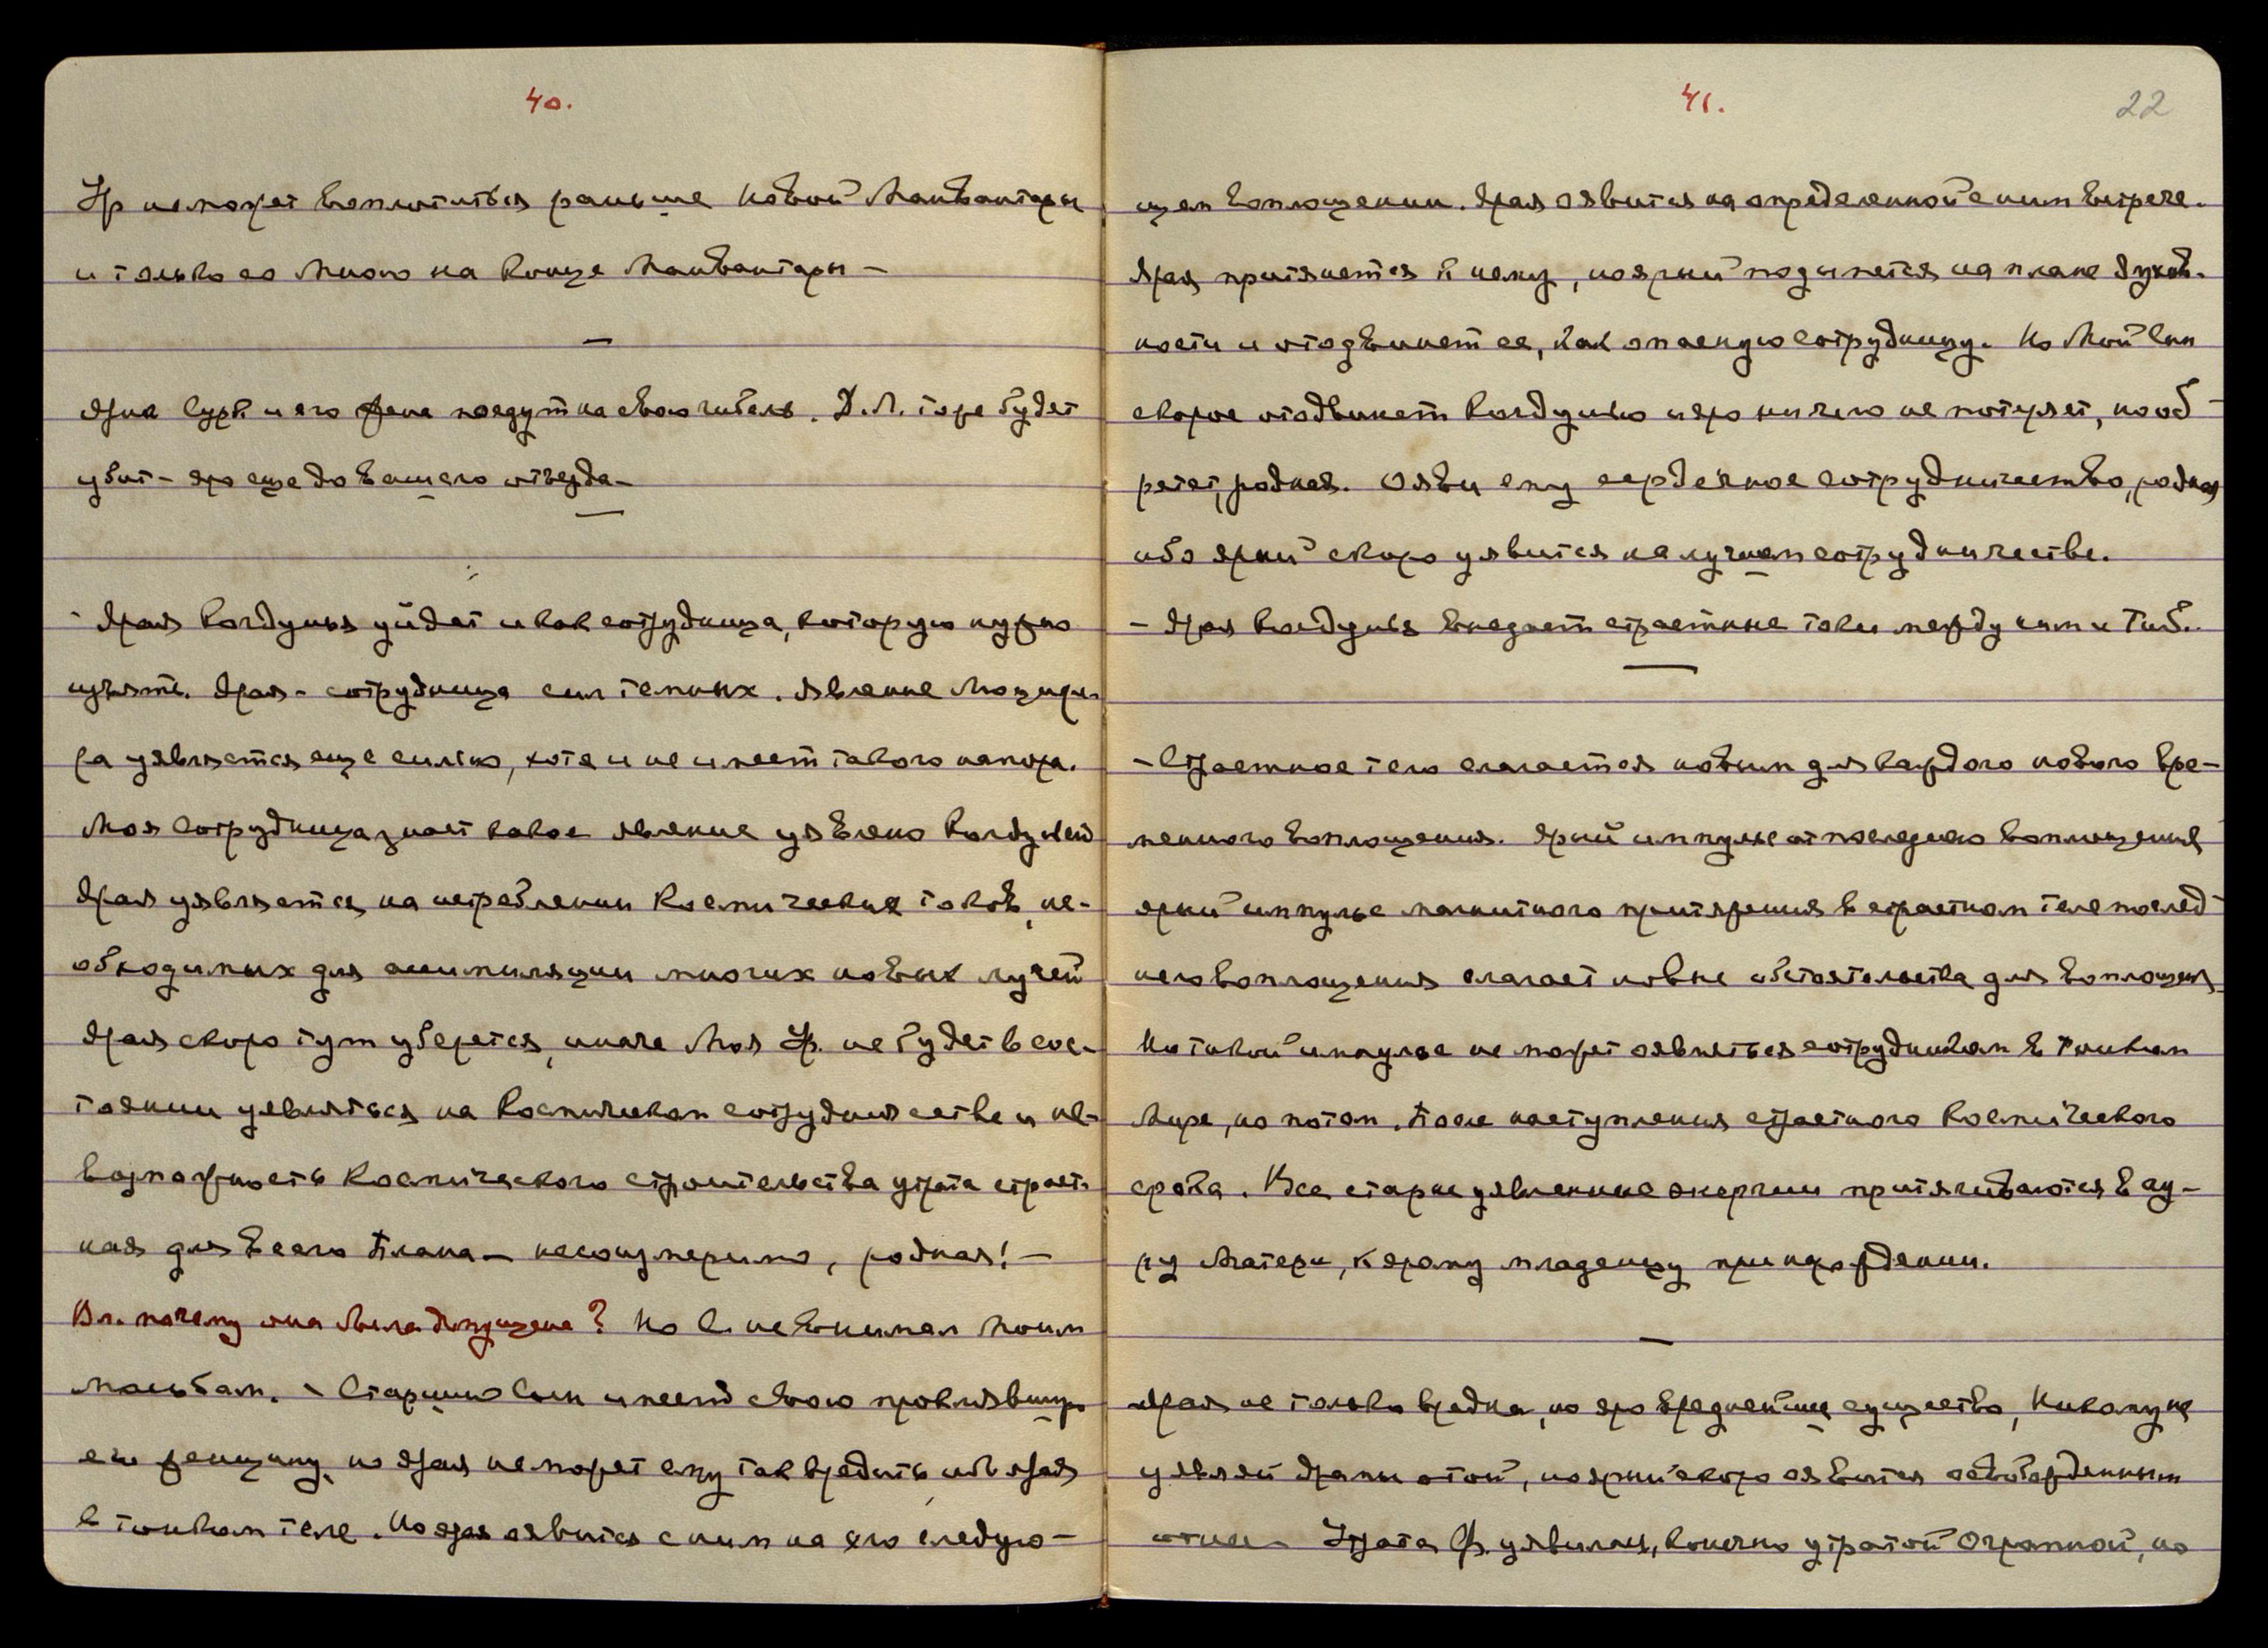 40.
Ур не может воплотиться раньше новой Манвантары
и только со Мною на конце Манвантары –
–
Ярка Сурк и его жена поедут на свою гибель. Д.Л. горе будет
убит – яро еще до Вашего отъезда –
–
– Ярая колдунья уйдет и как сотрудница, которую нужно
изъять. Ярая – сотрудница сил темных. Явление
уявляется еще сильно, хотя и не имеет такого напора.
Моя сотрудница знает какое явление уявлено колдуньей
Ярая уявляется на истреблении Космических токов, не-
обходимых для ассимиляции многих новых лучей
Ярая скоро тут уберется, иначе Моя Ур. не будет в сос-
тоянии уявляться на Космическом сотрудничестве и не-
возможность Космического строительства утрата страст-
ная для всего Плана – несоизмеримо, родная! –
Вл. почему она была допущена? Но С. не внимал Моим
мольбам. – Старший Сын имеет свою проклявшую
его женщину, но ярая не может ему так вредить ибо ярая
в тонком теле. Но ярая оявится с ним на его следую-
41.
22
щем воплощении. Ярая оявится на определенной с ним встрече.
Ярая притянется к нему, но ярый подымется на плане духов-
ности и отодвинет ее, как опасную сотрудницу. Но Мой Сын
скорее отодвинет колдунью и яро ничего не потеряет, но об-
ретет, родная. Ояви ему сердечное сотрудничество, родная
ибо ярый скоро уявится на лучшем сотрудничестве.
– Ярая колдунья внедряет страстные токи между ним и Тиб.
–
– Страстное тело слагается новым для каждого нового вре-
менного воплощения. Ярый импульс от последнего воплощения
ярый импульс магнитного притяжения в страстном теле послед-
него воплощения слагает новые обстоятельства для воплощения.
Но такой импульс не может оявиться сотрудником в Тонком
Мире, но потом. После наступления страстного Космического
срока. Все старые уявленные энергии притягиваются в ау-
ру Матери, к ярому младенцу при нарождении.
–
Ярая не только вредна, но яро вреднейшее существо, Никому не
уявляй драмы этой, но ярый скоро оявится освобожденным
Утрата Ур. уявилась, конечно утратой Огромной, но